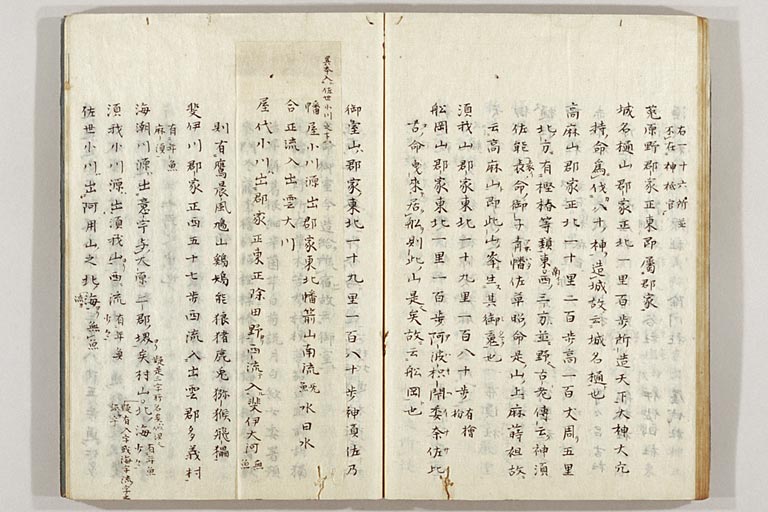 右一十六所並
不在神祇官
菟原野郡家正東即屬郡家
城名樋山郡家正北一里百歩所造天下大神大穴
持命為伐八十神造城故云城名樋也
高麻山郡家正北一十里二百歩高一百丈周五里
北方有樫椿等類東南西三方並野古老傳云神須
佐能袁命御子青幡佐草昭命是山上麻蒔祖故
云高麻山即此山岑坐其御魂也
須我山郡家東北一十九里一百八十歩有檜
船岡山郡家東北一里一百歩阿波枳閇委奈佐比
古命曳来居船則此山是矣故云船岡也
御室山郡家東北一十九里一百八十歩神須佐乃
異本入佐世小川之下
幡屋小川源出郡家東北幡箭山南流無魚水四水
合正流入出雲大川
屋代小川出郡家正東正除田野西流入斐伊大河無魚
則有鷹晨風鳩山鷄雉熊狼猪鹿兎獼猴飛鼯
斐伊川郡家正西五十七歩西流入出雲郡多義村
有年魚
麻須
海潮川源出意宇与大原二郡堺矣村山北海
有年魚
須我小川源出須我山西流有年魚
佐世小川出阿用山之北海無魚
流